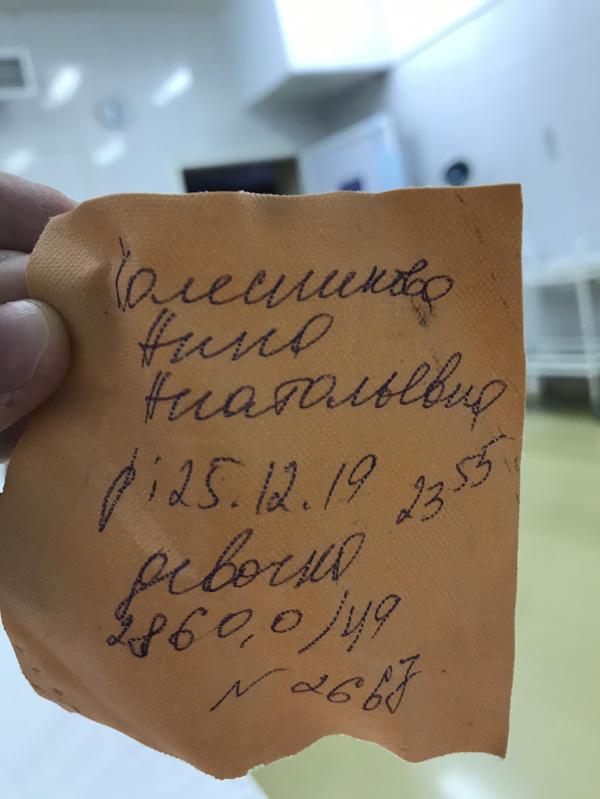 Колесникова
Нина
Анатольевна
р: 25.12.19 23 55
девочка
2860,0/49
N 2667